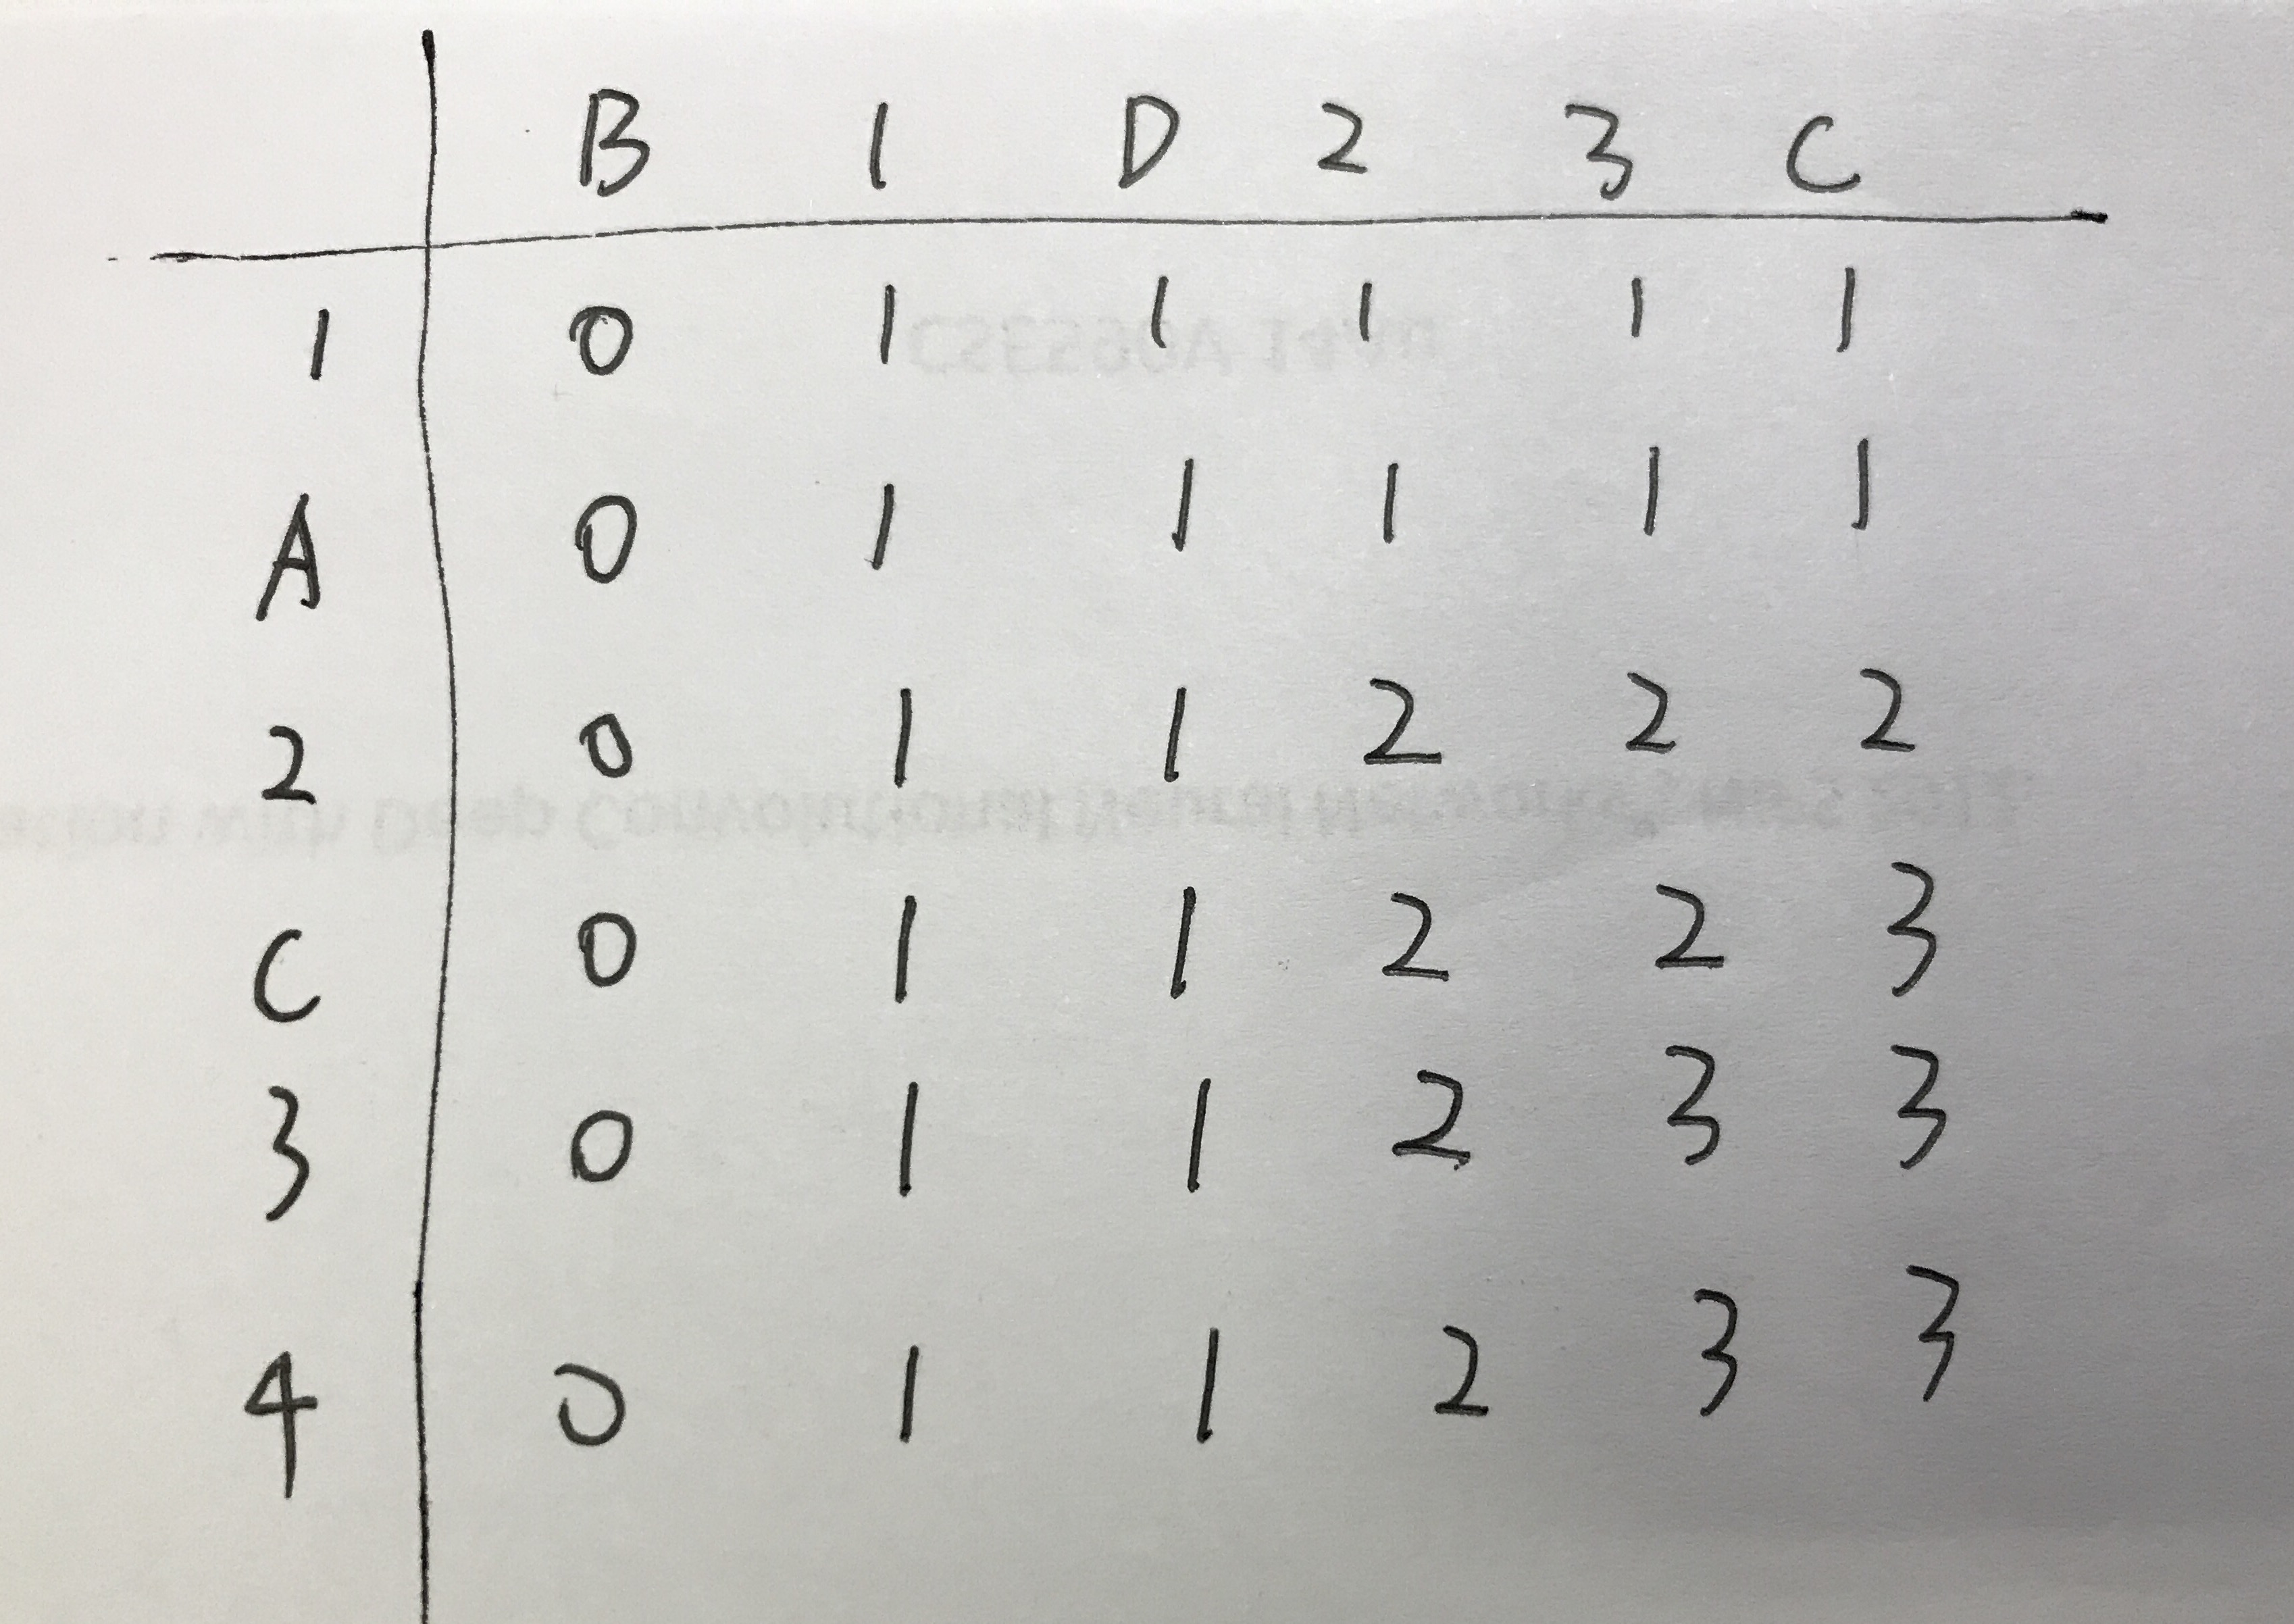 B 1 D 2 3 C
1 0 1 1 1 1 1
A 0 1 1 1 1 1
2 0 1 1 2 2 2
C 0 1 1 2 2 3
3 0 1 1 2 3 3
4 0 1 1 2 3 3